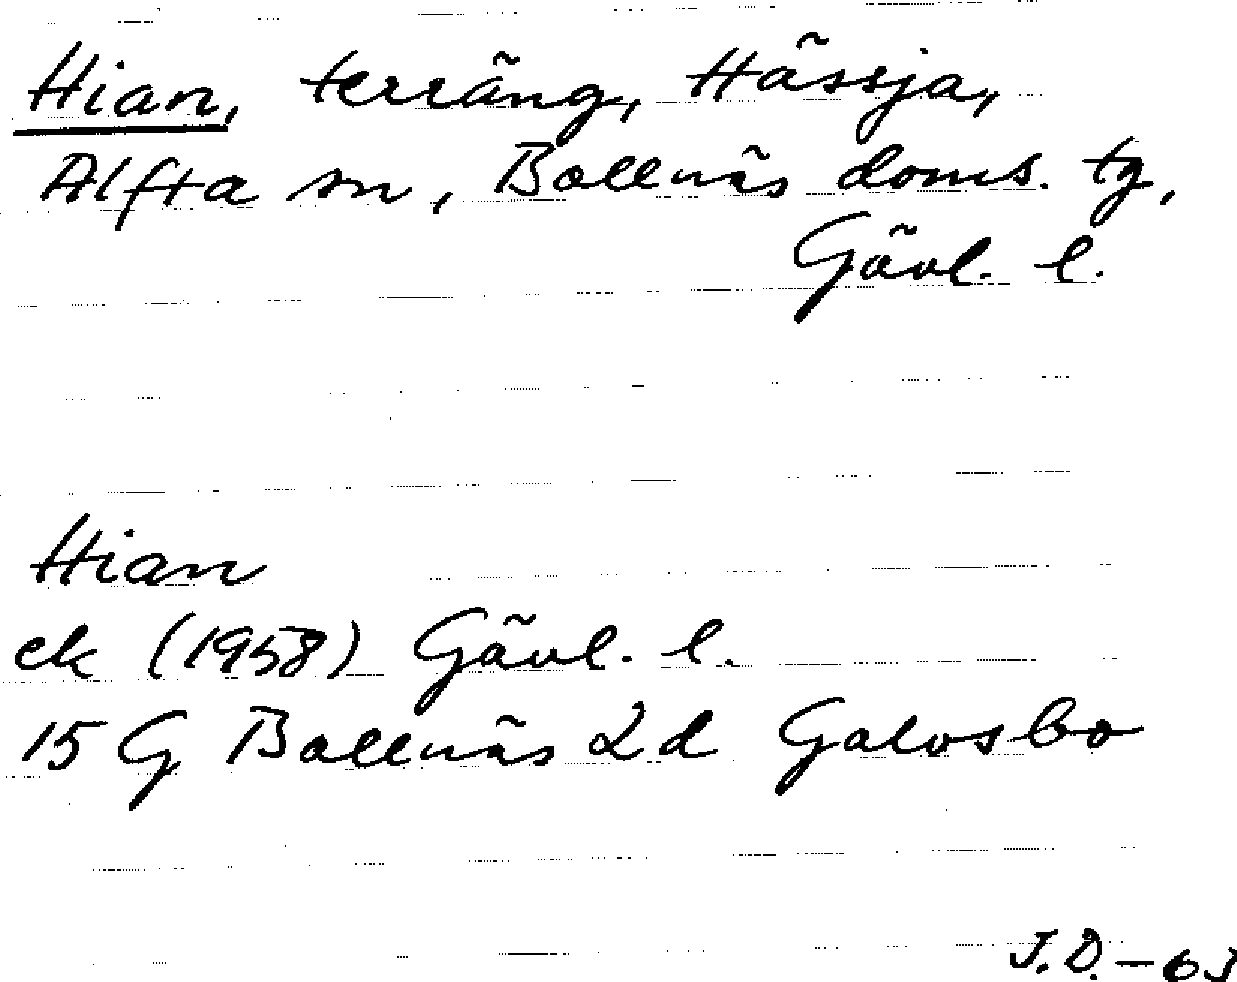 Hian, terräng, Hässja,
Alfta sn, Bollnäs doms. tg,
Gävl. l.
Hian
ek (1958) Gävl. l.
15 G Bollnäs 2 d Galvsbo
J.D. - 63